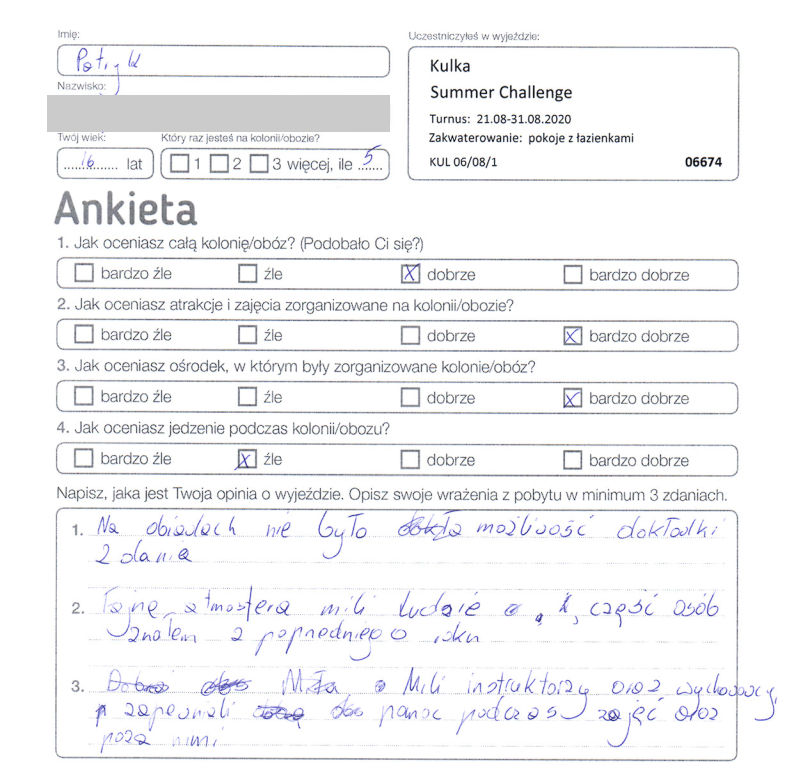 Imię:
Patryk
Nazwisko:
Twój wiek:
16 lat
Który raz jesteś na kolonii/obozie?
1 2 3 więcej, ile 5
Uczestniczyłeś w wyjeździe:
Kulka
Summer Challenge
Turnus: 21.08-31.08.2020
Zakwaterowanie: pokoje z łazienkami
KUL 06/08/1 06674
Ankieta
1. Jak oceniasz całą kolonię/obóz? (Podobało Ci się?)
bardzo źle źle X dobrze bardzo dobrze
2. Jak oceniasz atrakcje i zajęcia zorganizowane na kolonii/obozie?
bardzo źle źle dobrze X bardzo dobrze
3. Jak oceniasz ośrodek, w którym były zorganizowane kolonie/obóz?
bardzo źle źle dobrze X bardzo dobrze
4. Jak oceniasz jedzenie podczas kolonii/obozu?
bardzo źle X źle dobrze bardzo dobrze
Napisz, jaka jest Twoja opinia o wyjeździe. Opisz swoje wrażenia z pobytu w minimum 3 zdaniach.
1. Na obiadach nie było możliwość dokładki
2 dania
2. Fajne atmosfera mili ludzie, część osób
znałem z poprzedniego roku
3. Mili instruktorzy oraz wychowawcy,
zapewniali pomoc podczas zajęć oraz
poza nimi